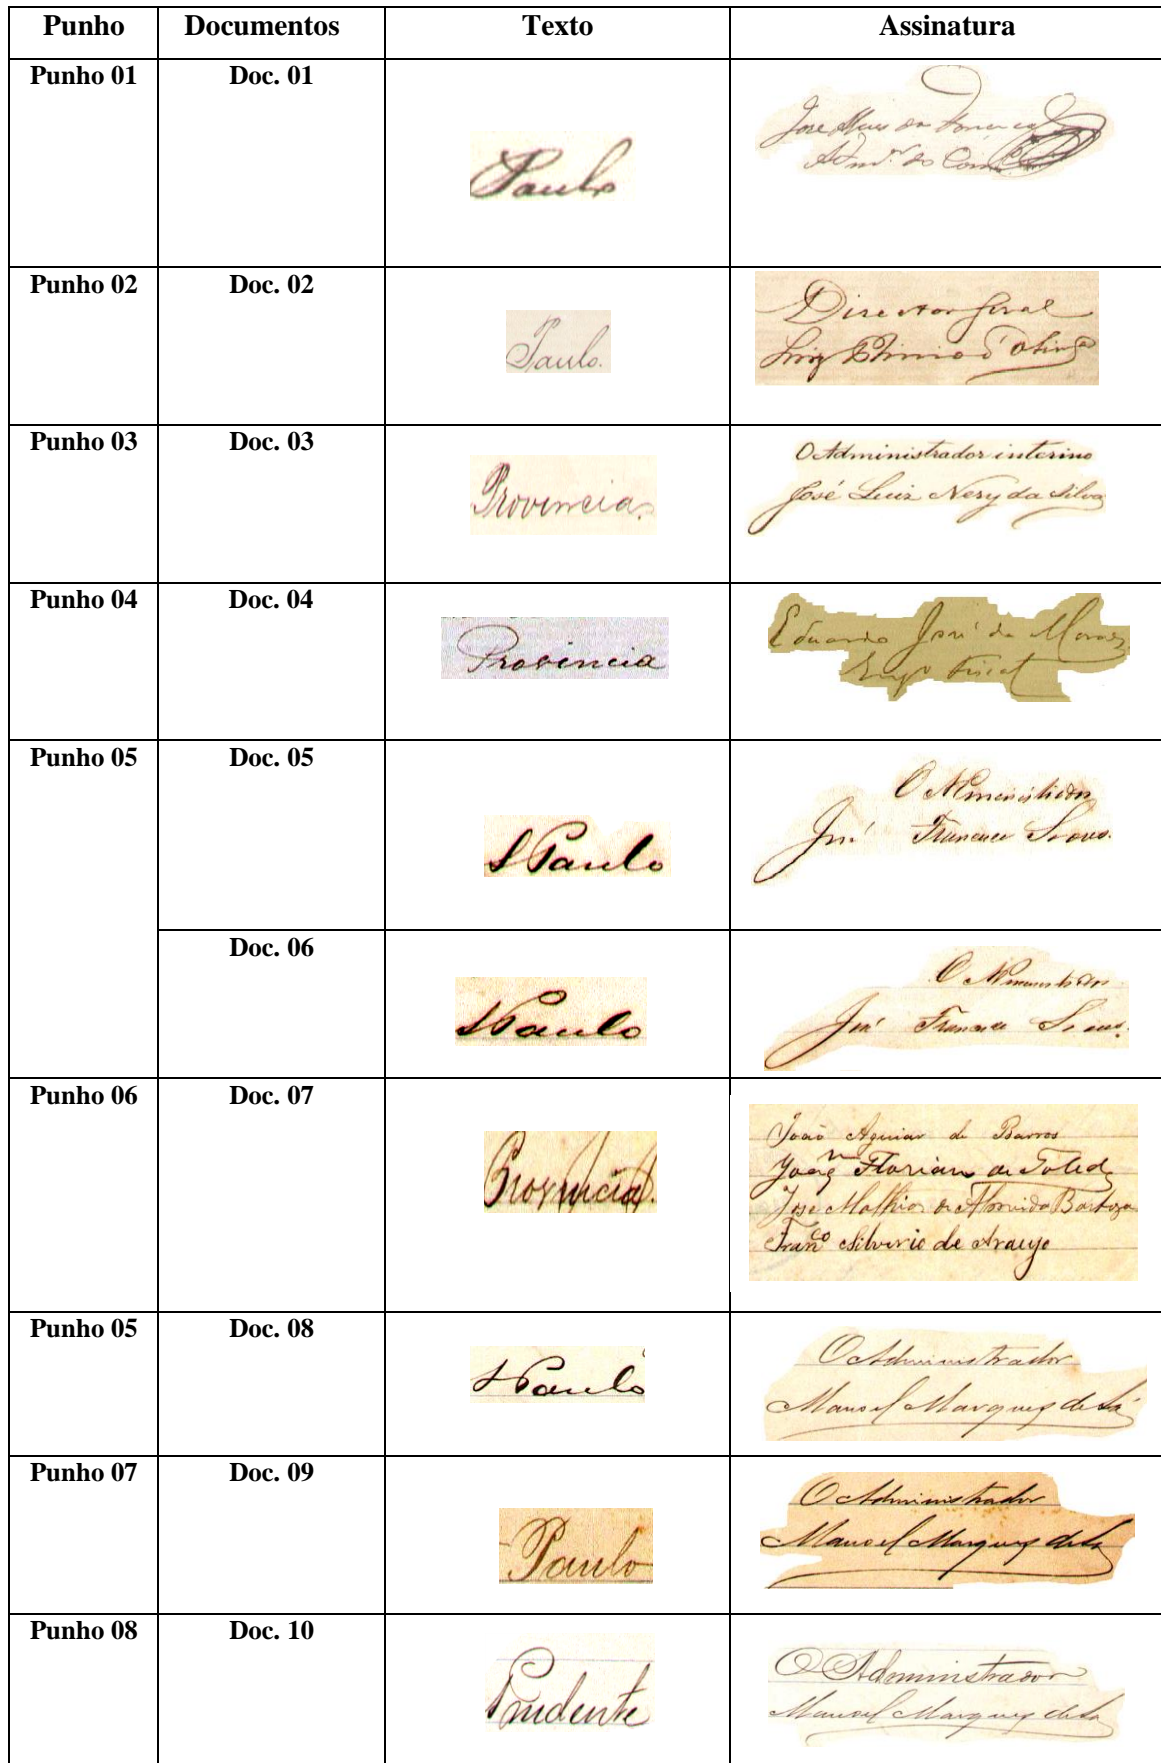 Punho Documentos Texto Assinatura
Punho 01 Doc. 01
Paulo
José Maria da Fonseca
Adm.or do Corr.
Punho 02 Doc. 02
Paulo.
Director Geral
Luiz Plinio d'Olivra
Punho 03 Doc. 03
Provincia.
O Administrador interino
José Luiz Nery da Silva
Punho 04 Doc. 04
Provincia
Eduardo José de Moraes
Engo Fiscal
Punho 05 Doc. 05
S Paulo
O Administrador
José Francisco Soares.
Doc. 06
S Paulo
O Administrador
José Francisco Soares.
Punho 06 Doc. 07
Provincia.
João Aguiar de Barros
Joaqm Floriano de Toledo
José Mathias de Almeida Barboza
Franco Silverio de Araujo
Punho 05 Doc. 08
S Paulo
O Administrador
Manoel Marques de Sá
Punho 07 Doc. 09
Paulo
O Administrador
Manoel Marques de Sá
Punho 08 Doc. 10
Prudente
O Administrador
Manoel Marques de Sá